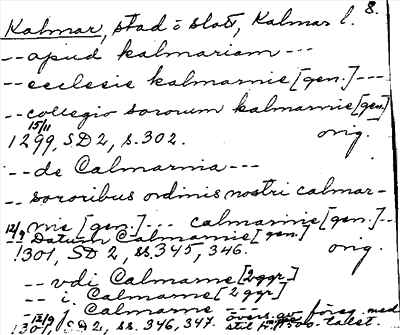 Kalmar, stad o slott, Kalmar l. 8.
-- apud kalmariam ---
-- ecclesie kalmarnie [gen.] ---
-- collegio sororum kalmarnie [gen]
15/11 1299, SD 2, s. 302. orig.
-- de Calmarnia ---
-- sororibus ordinis nostri calmar-
nie [gen.] --- calmarnie [gen.] --
12/9 Datum Calmarnie [gen.]
1301, SD 2, ss. 345, 346. orig.
-- vdi Calmarne [2 ggr.]
-- i Calmarne [2 ggr]
-- j Calmarne
12/9 1301, SD 2, ss. 346, 347. övers. med
stil talet.